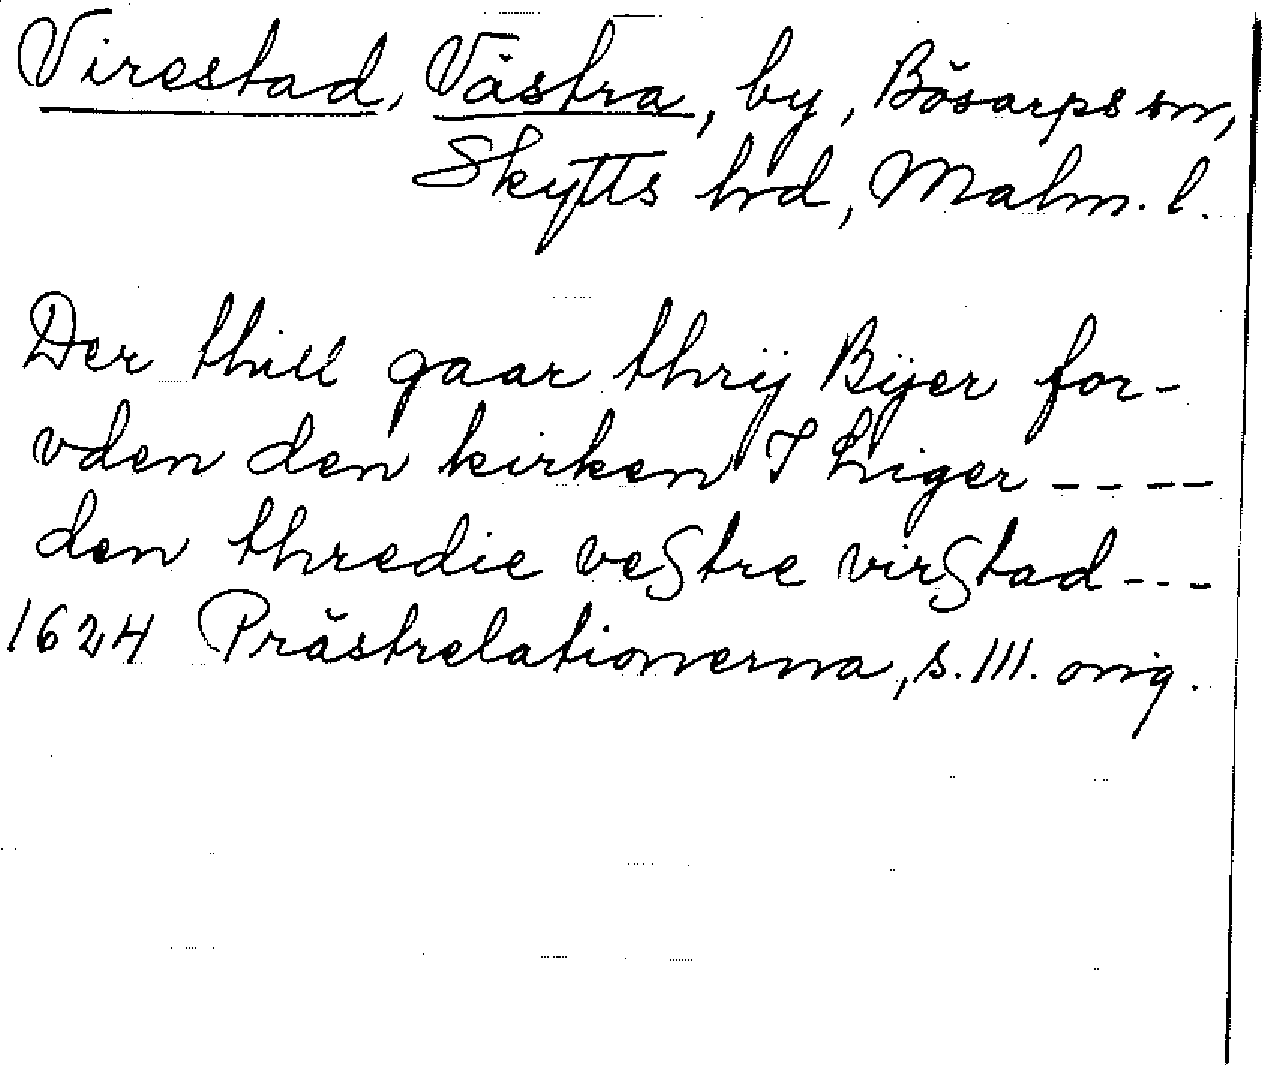 Virestad, Västra, by, Bösarps sn,
Skytts hrd, Malm. l.
Der thill gaar thrij Bÿer for-
vden den kirken I Liger ----
den thredie veStre virStad---
1624 Prästrelationerna, s. 111. orig.